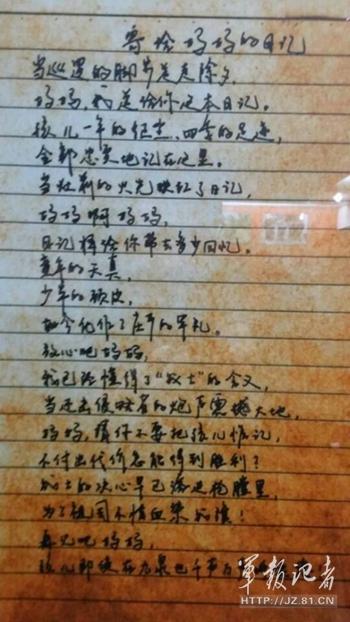 寄给妈妈的日记
当巡逻的脚步走走除夕,
妈妈,我送给你这本日记。
孩儿一年的经历,四季的足迹,
全部忠实地记在这里。
当灶前的火光映红了日记,
妈妈啊妈妈,
日记将给你带去多少回忆。
童年的天真,
少年的顽皮,
如今化作了庄严的军礼。
放心吧妈妈,
我已经懂得了“战士”的含义,
当还击侵略者的炮声震撼大地,
妈妈,请你不要把孩儿惦记,
不付出代价怎能得到胜利?
战士的决心早已溶进枪膛里,
为了祖国不惜血染的
再见吧妈妈,
孩儿即使在九泉也千声万
軍報記者
HTTP://JZ.81.CN